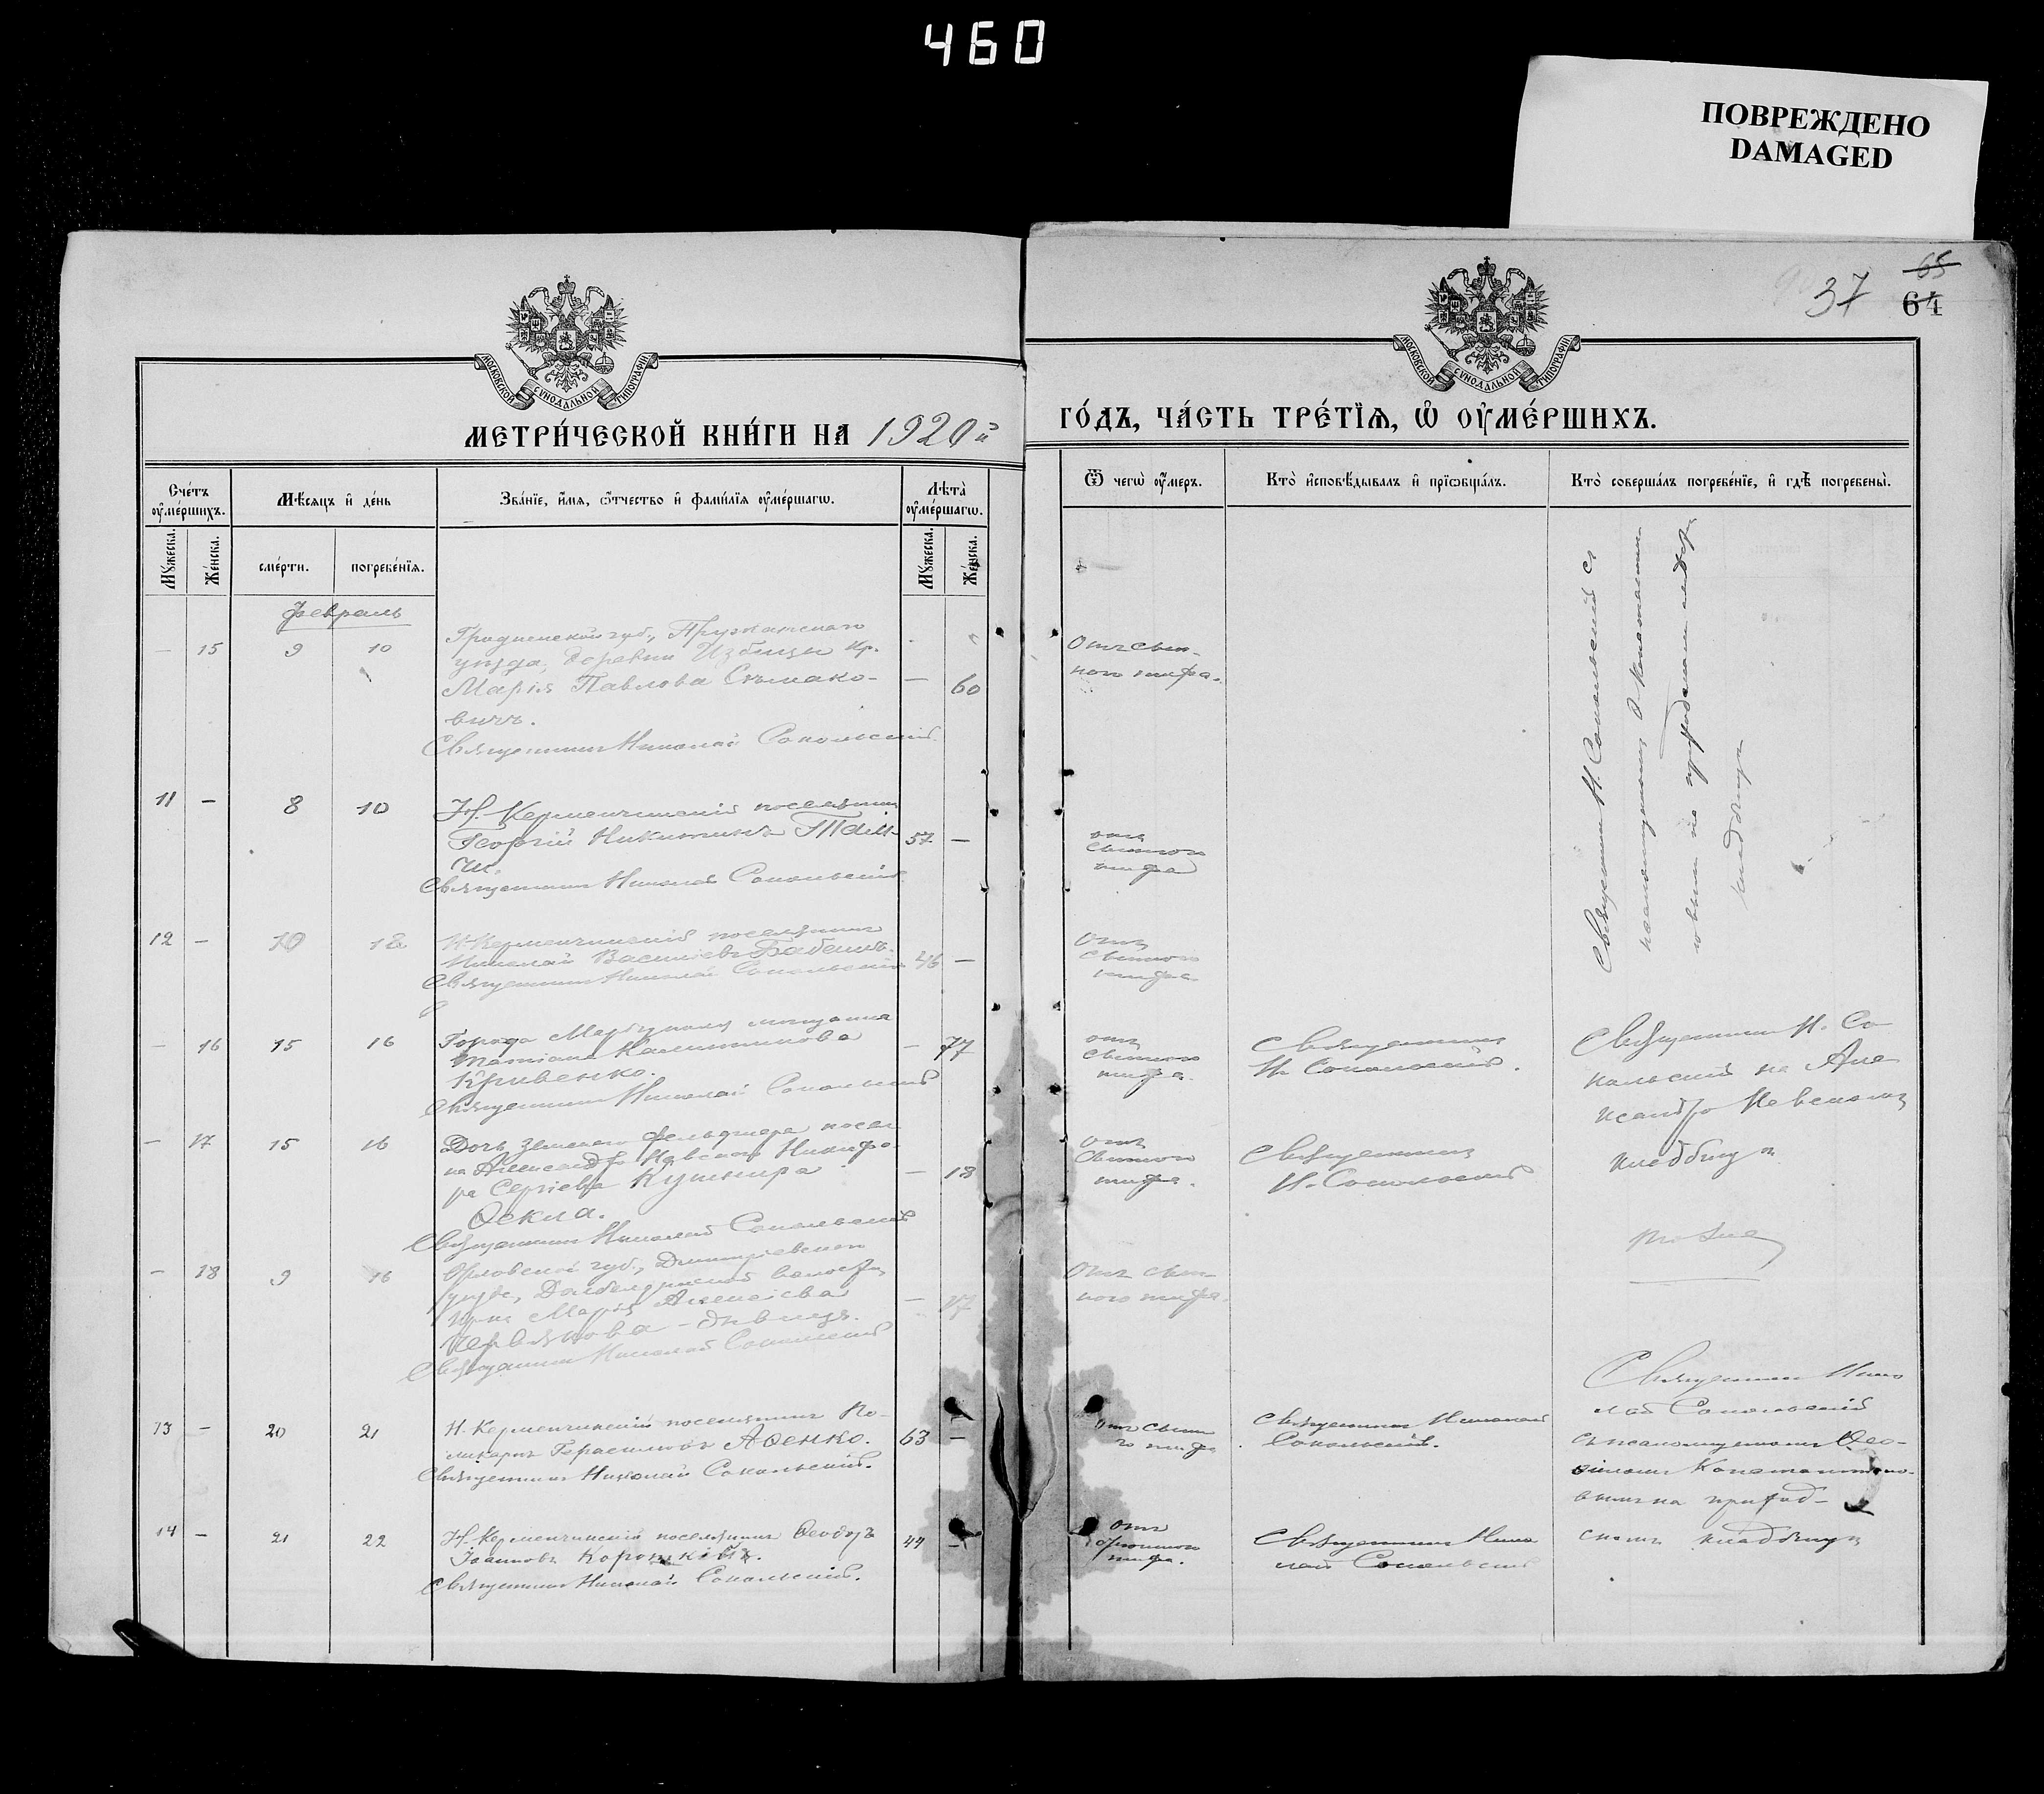 460
ПОВРЕЖДЕНО
DAMAGED
65
37 64
МОСКОВСКОЙ СѴНОДАЛЬНОЙ ТИПОГРАФІИ
МОСКОВСКОЙ СѴНОДАЛЬНОЙ ТИПОГРАФІИ
МЕТРИ́ЧЕСКОЙ КНИ́ГИ НА 1920 й
ГО́ДЪ, ЧА́СТЬ ТРЕ́ТЇѦ, Ѡ҆ ОУ҆МЕ́РШИХЪ.
Сче́тъ оу҆ме́ршихъ.
Мѣ́сяцъ и҆ де́нь
Зва́нїе, и҆́мя, ѻ҆́тчество и҆ фами́лїя оу҆ме́ршагѡ.
Лѣта̀ оу҆ме́ршагѡ.
Ѿ чегѡ̀ оу҆́меръ.
Кто̀ и҆сповѣ́дывалъ и҆ прїѡбща́лъ.
Кто̀ соверша́лъ погребе́нїе, и҆ гдѣ̀ погребены̀.
Мꙋ́жеска.
Же́нска.
сме́рти.
погребе́нїя.
Мꙋ́жеска.
Же́нска.
Февраль
— 15 9 10 Гродненской губ., Пружанскаго
уѣзда, деревни Избицы кр.
Марія Павлова Сьмако-
вичъ. — 60
Священникъ Николай Сокольскій.
Отъ сып-
ного тифа.
Священникъ Н. Сокольскій съ
псаломщикомъ О. Константи-
новымъ на приходскомъ
кладбищѣ
11 — 8 10 Н.-Керменчикскій поселянинъ
Георгій Никитинъ
чи. 57 —
Священникъ Николай Сокольскій
отъ
сыпного
тифа
12 — 10 18 Н-Керменчикскій поселянинъ
Николай Васильевъ Бабешъ. 46 —
Священникъ Николай Сокольскій
отъ
сыпного
тифа
— 16 15 16 Города Маріуполя мѣщанка
Татіана Калинникова
Кривенко. — 77
Священникъ Николай Сокольскій
отъ
сыпного
тифа.
Священникъ
Н. Сокольскій.
Священникъ Н. Со-
кольскій на Але-
ксандро Невскомъ
кладбищѣ
— 17 15 16 Дочь земскаго фельдшера посел-
ка Александро Невскаго Никифо-
ра Сергіева Кушнира — 18
Ѳекла.
Священникъ Николай Сокольскій
отъ
сыпного
тифа.
Священникъ
Н. Сокольскій
— 18 9 16 Орловской губ., Дмитріевскаго
уѣзда, волости,
Марія Алексіева
Червякова — дѣвица. — 17
Священникъ Николай Сокольскій
Отъ сып-
ного тифа.
13 — 20 21 Н. Керменчикскій поселянинъ По-
ликарпъ Герасимовъ Аѳенко. 63 —
Священникъ Николай Сокольскій.
Отъ сыпно
го тифа
Священникъ Николай
Сокольскій.
Священникъ Нико
лай Сокольскій
съ псаломщикомъ Ѳео-
филомъ Константино-
вымъ на приход-
скомъ кладбищѣ
14 — 21 22 Н. Керменчикскій поселянинъ Ѳеодоръ
Іоанновъ 44 —
Священникъ Николай Сокольскій.
отъ
брюшного
тифа.
Священникъ Нико
лай Сокольскій